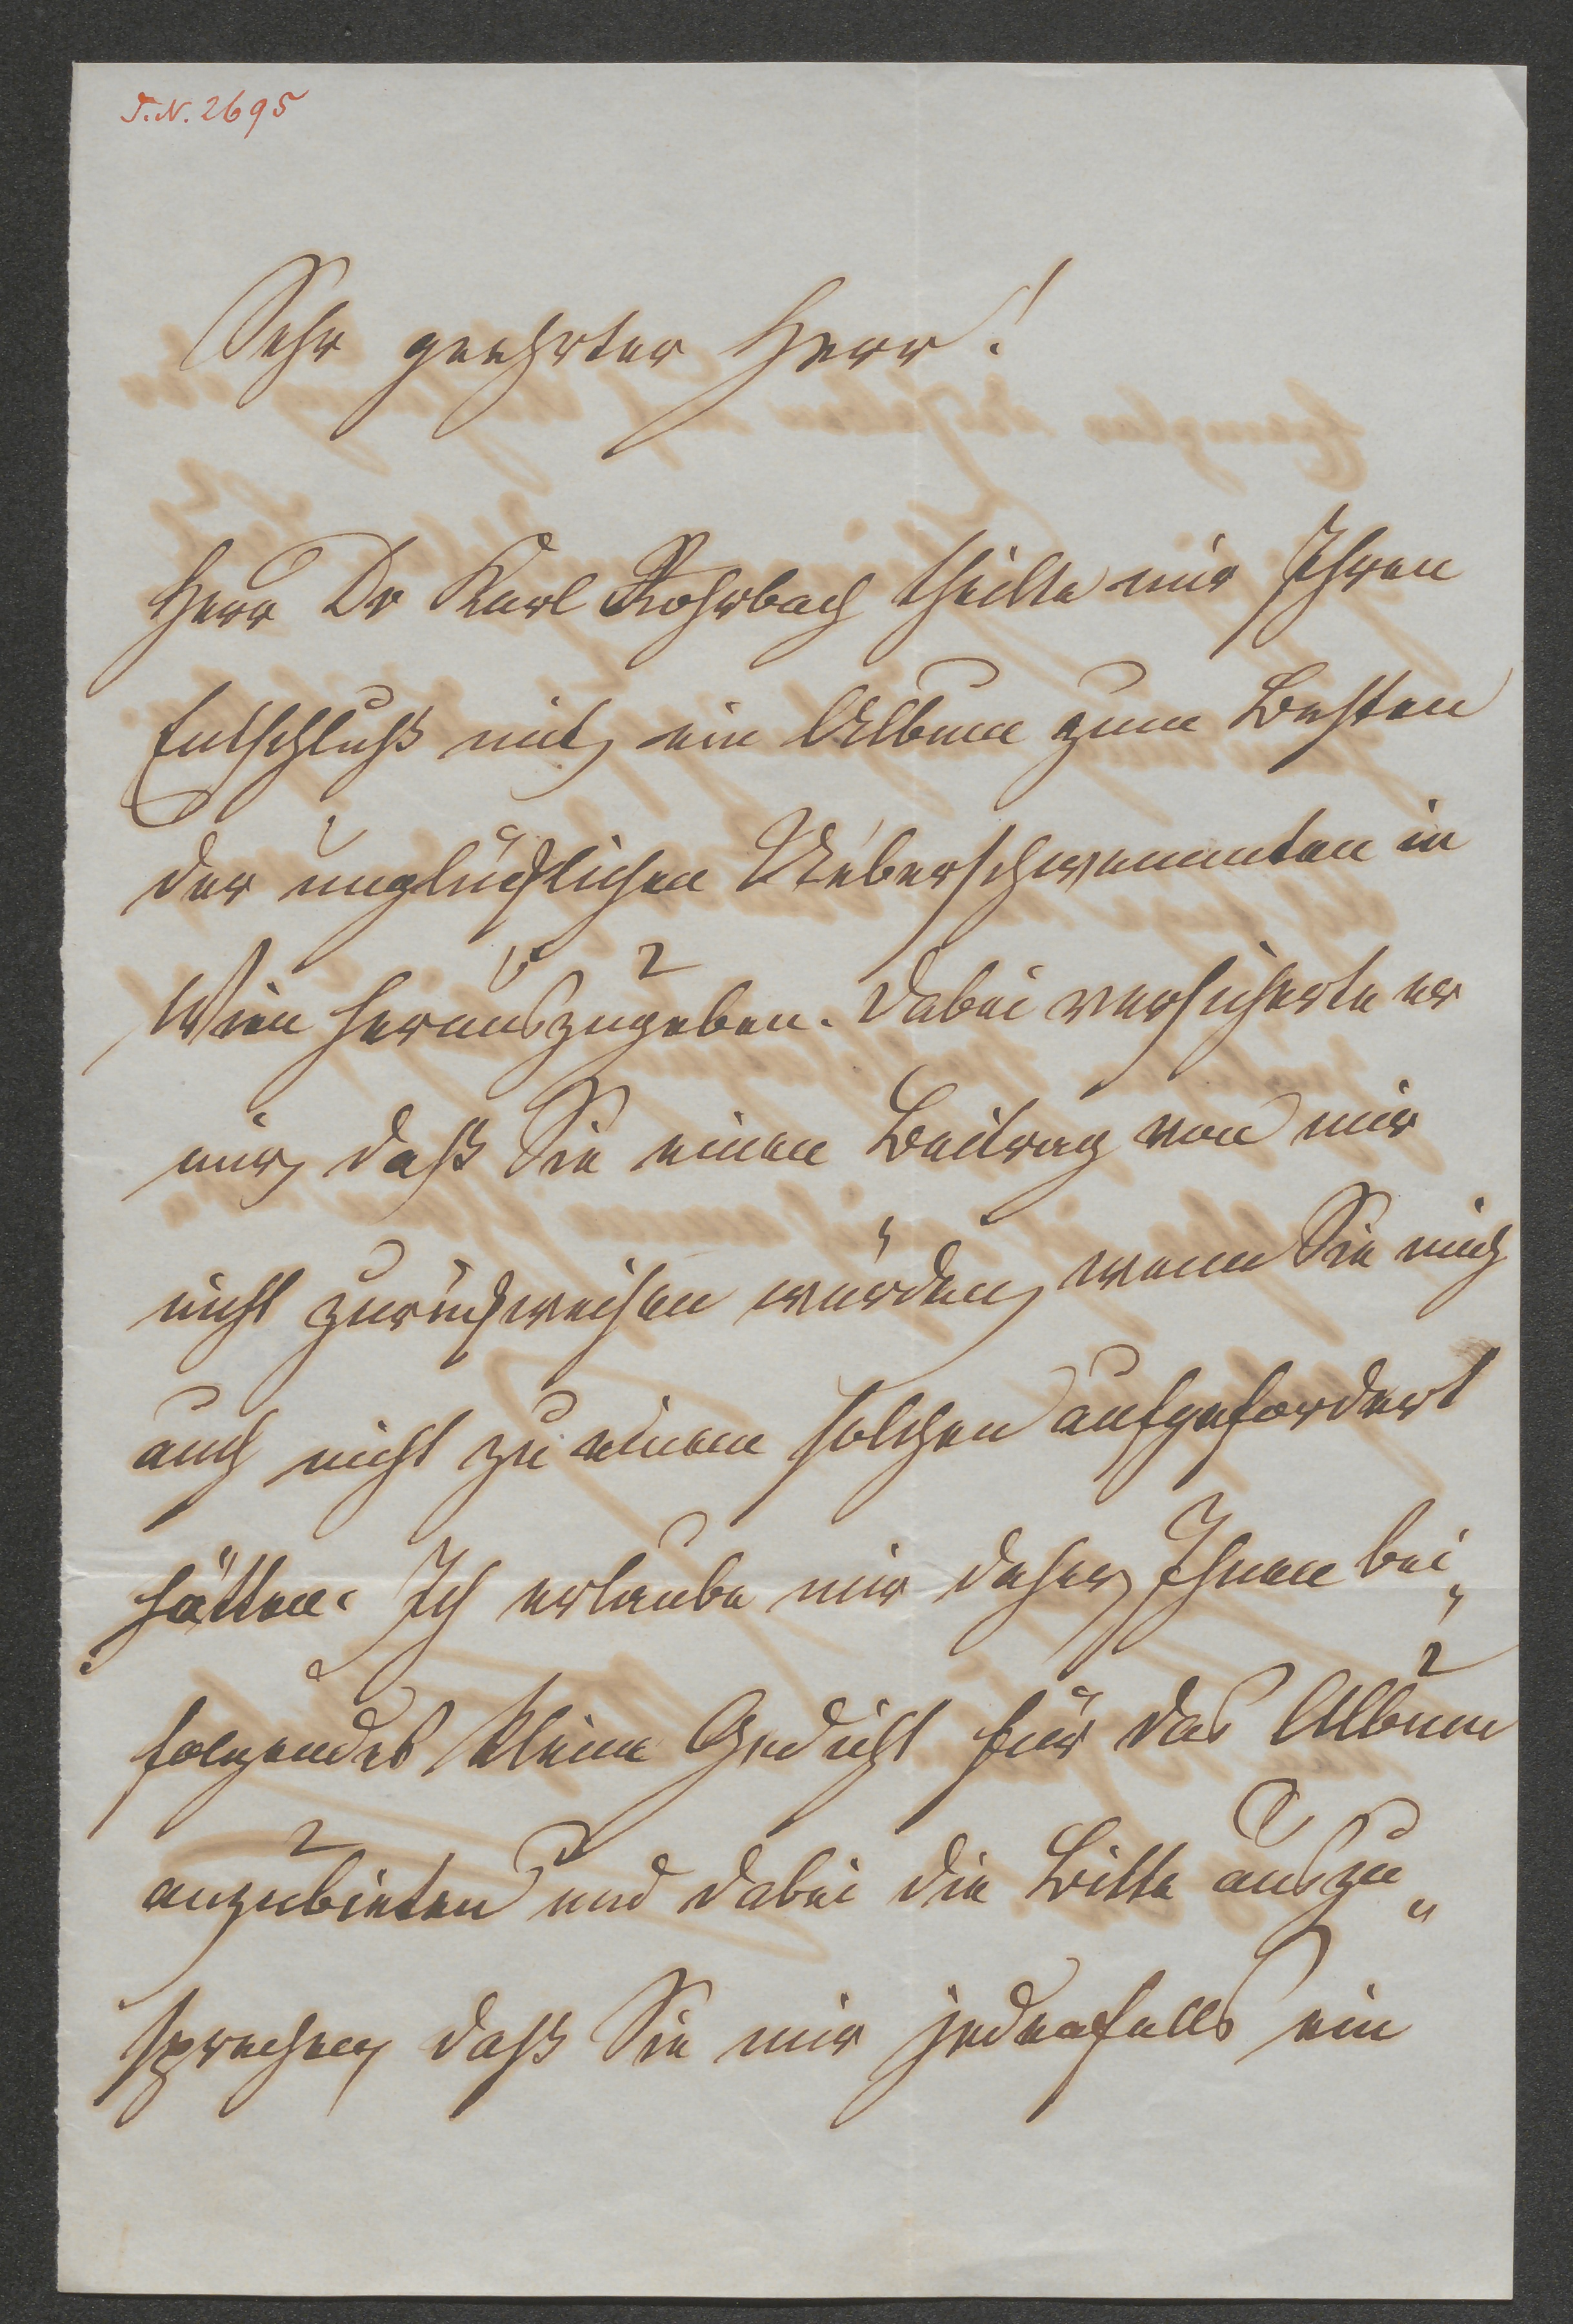 J.N. 2695
Sehr geehrter Herr!
Herr Dr Karl Rohrbach theilte mir Ihren
Entschluß mit, ein Album zum Besten
der unglücklichen Ueberschwemmten in
Wien herauszugeben. Dabei versicherte er
mir, daß Sie einen Beitrag von mir
nicht zurückweisen würden, wenn Sie mich
auch nicht zu einem solchen aufgefordert
hätten. Ich erlaube mir daher, Ihnen bei„
folgendes kleine Gedicht für das Album
anzubieten und dabei die Bitte auszu„
sprechen, daß Sie mir jedenfalls ein